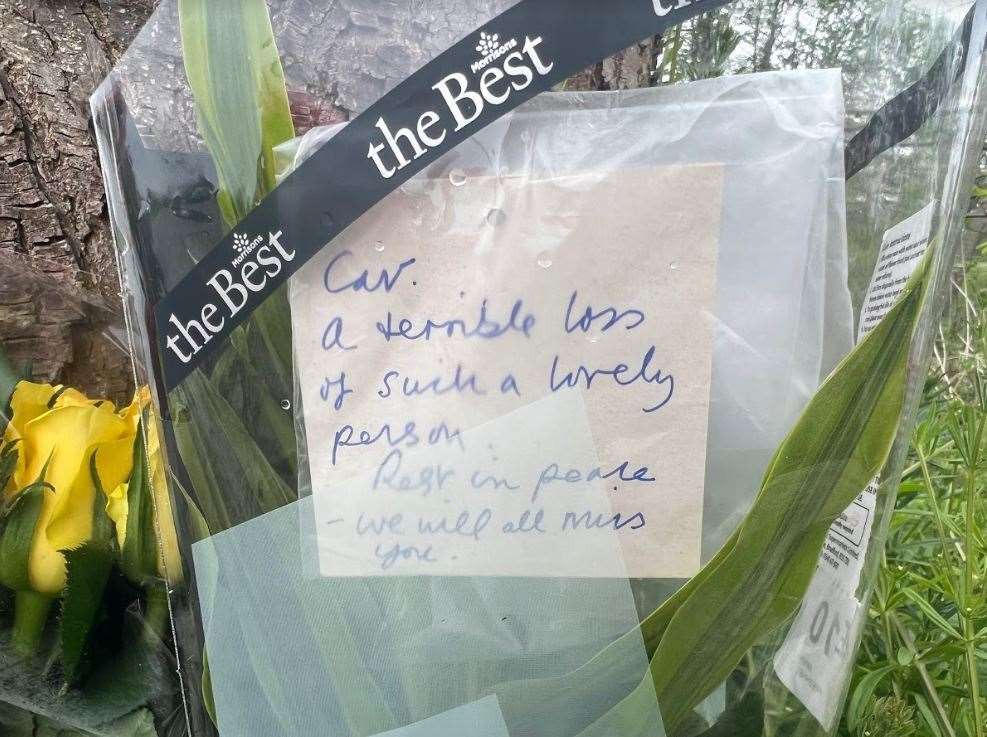 Morrisons
the Best
Morrisons
the Best
Cav.
A terrible loss
of such a lovely
person.
Rest in peace
- we will all miss
you.
£10